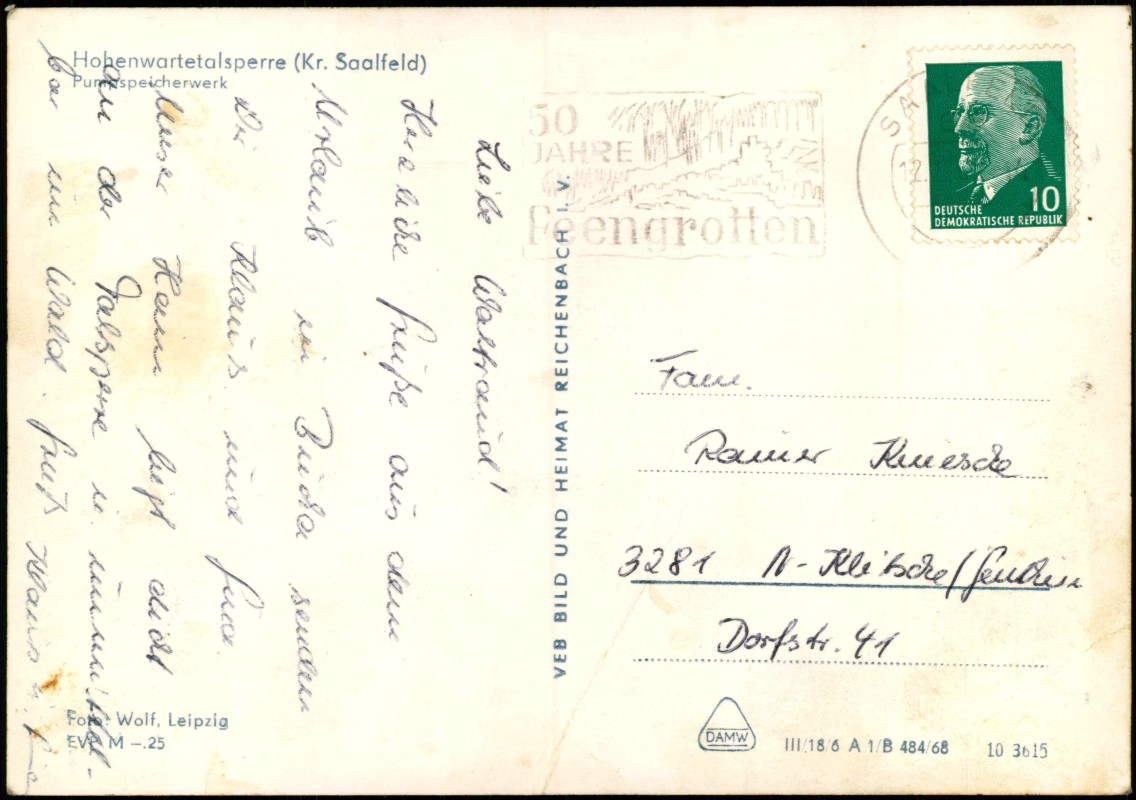 Hohenwartetalsperre (Kr. Saalfeld)
Pumpspeicherwerk
Liebe Waltraud!
Herzliche Grüße aus dem
Urlaub in Bucha senden
Dir Klaus und
Unser Heim liegt dicht
an der Talsperre u. unmittel-
bar im Wald. Gruß Klaus u.
Foto: Wolf, Leipzig
EVP M –.25
VEB BILD UND HEIMAT REICHENBACH i. V.
50
JAHRE
Feengrotten
SA
12.
10
DEUTSCHE
DEMOKRATISCHE REPUBLIK
Fam.
Rainer
3281 N-Klitsche/Genthin
Dorfstr. 41
DAMW
III/18/6 A 1/B 484/68 10 3615